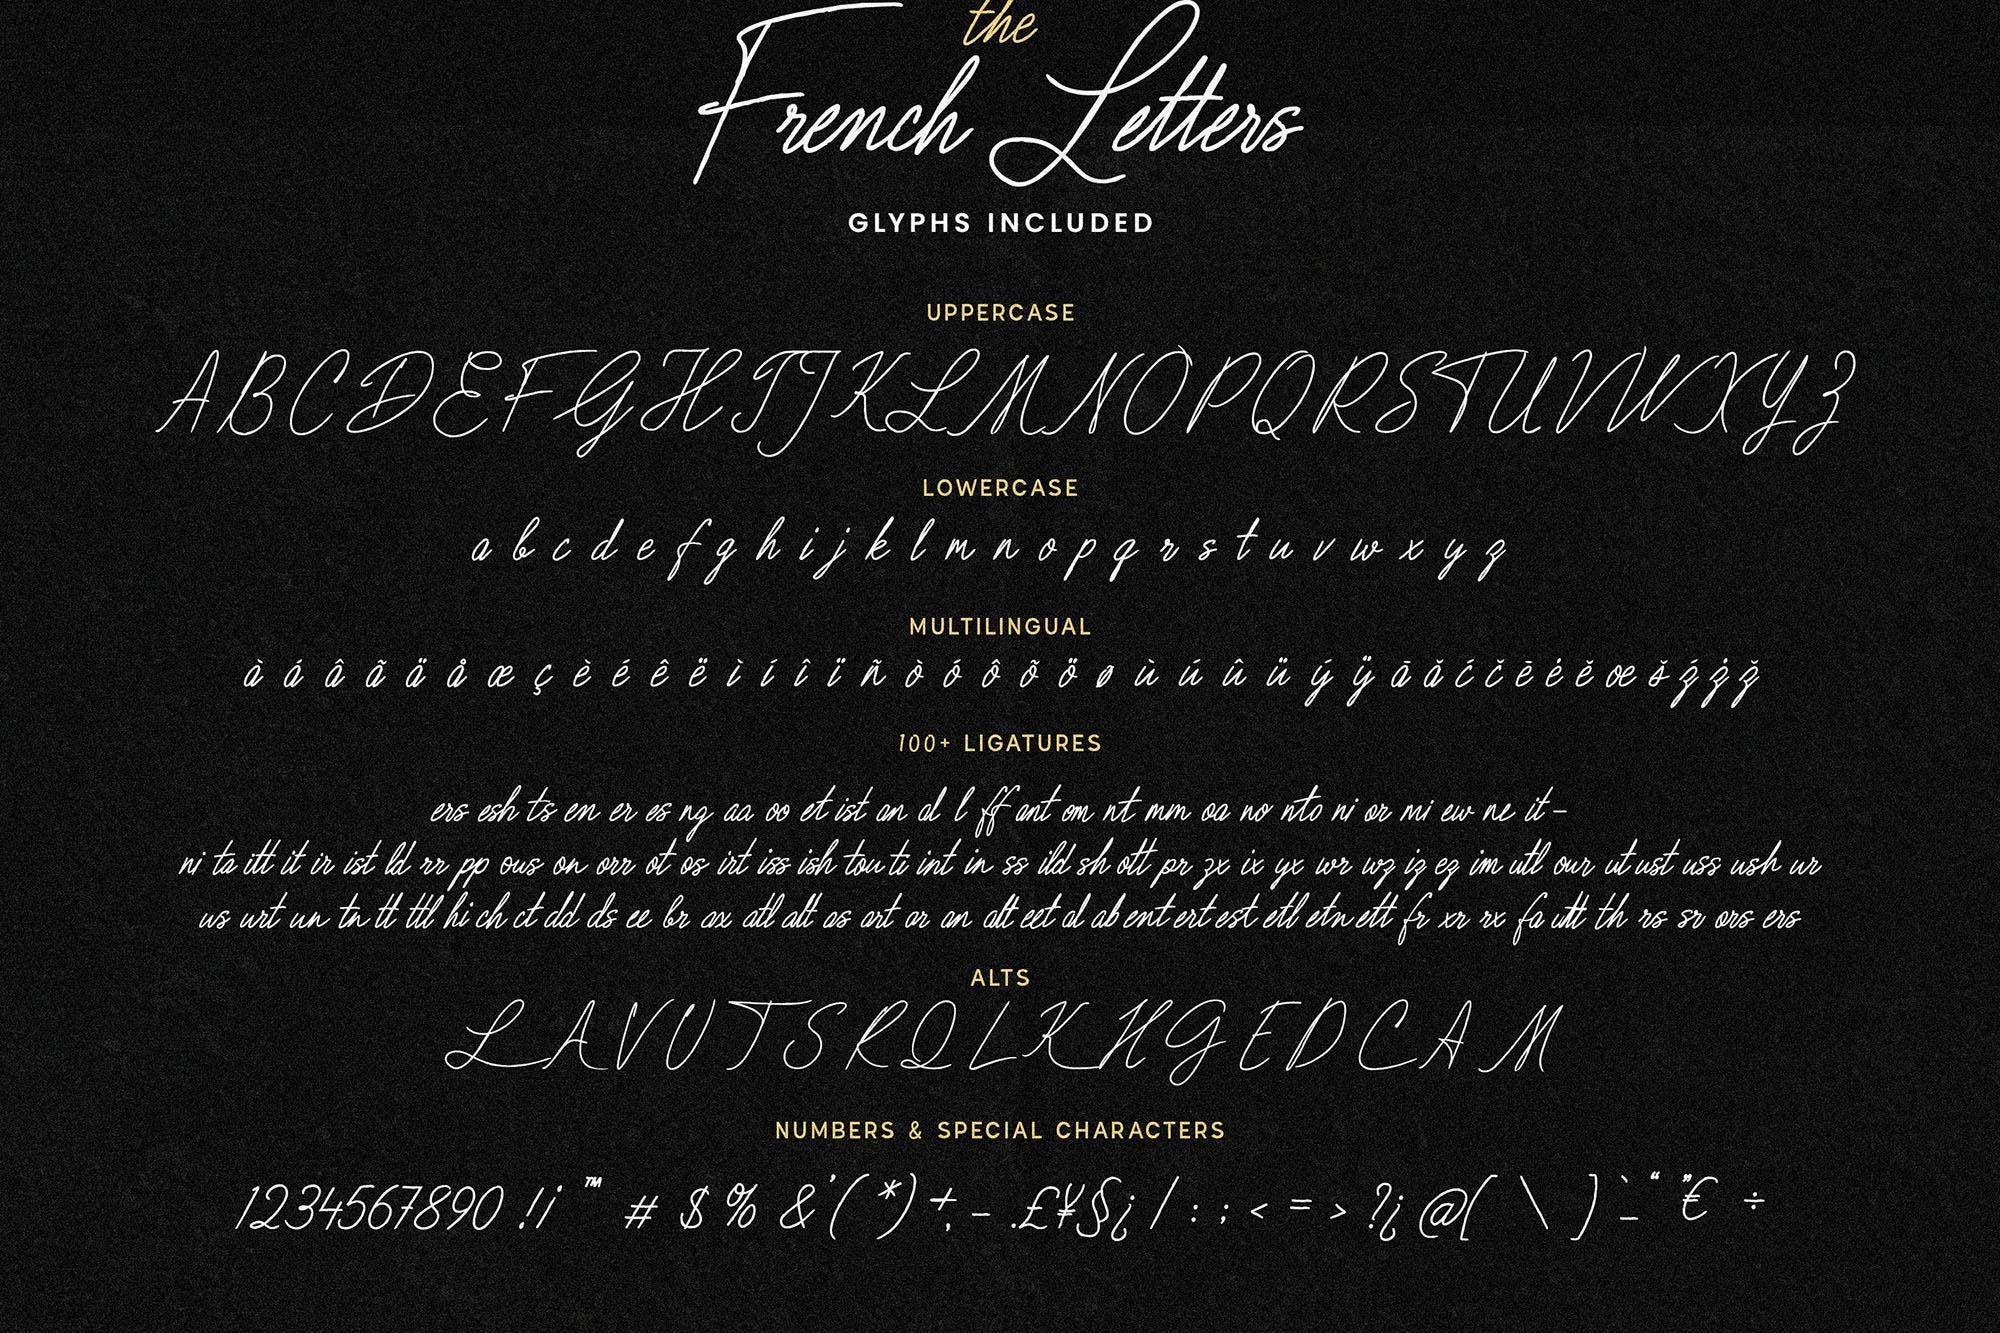 the
French Letters
GLYPHS INCLUDED
UPPERCASE
A B C D E F G H I J K L M N O P Q R S T U V W X Y Z
LOWERCASE
a b c d e f g h i j k l m n o p q r s t u v w x y z
MULTILINGUAL
à á â ã ä å æ ç è é ê ë ì í î ï ñ ò ó ô õ ö ø ù ú û ü ý ÿ ā ă ć č ē ė ě œ š ź ż ž
100+ LIGATURES
ers esh ts en er es ng aa oo et ist an al l ff ant om nt mm oa no nto ni or mi ew ne it -
ni ta itt it ir ist ld rr pp ous on orr ot os irt iss ish tou ti int in ss ild sh ott pr zx ix yx wr wz iz ez im utl our ut ust uss ush ur
us urt un tn tt ttl hi ch ct dd ds ee br ax atl alt as art ar an alt eet al ab ent ert est etl etn ett fr xr rx fa utt th rs sr ors ers
ALTS
L A V U T S R Q L K H G E D C A M
NUMBERS & SPECIAL CHARACTERS
1234567890 !¡ ™ # $ % & ' ( * ) + , - . £ ¥ § ¿ / : ; < = > ? ¿ @ [ \ ] ` _ “ ” € ÷